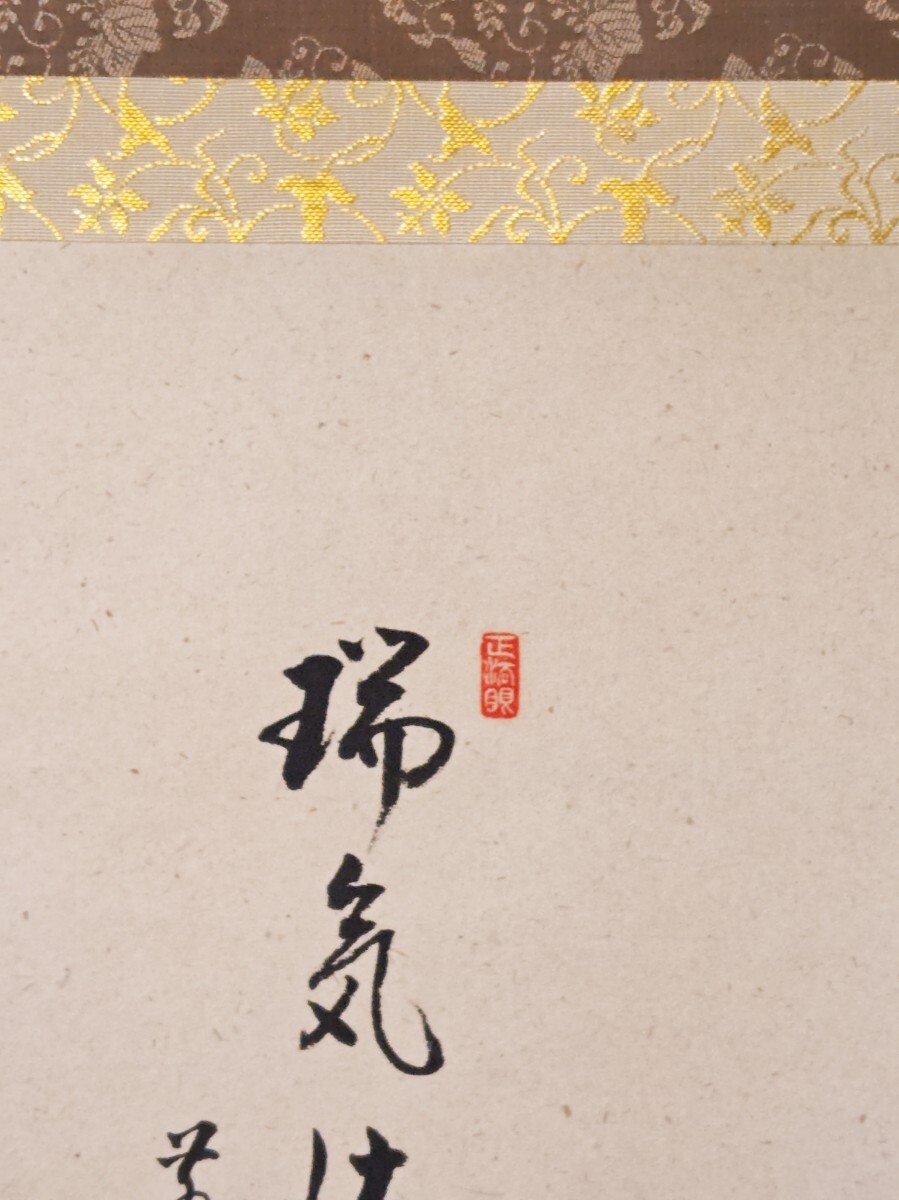 正法眼
瑞気